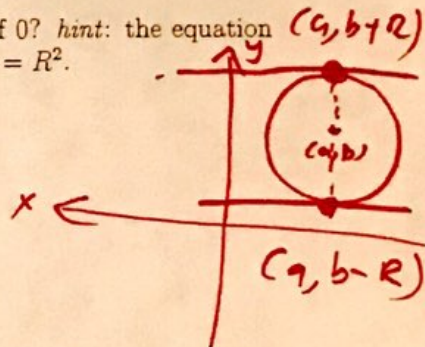 f 0? hint: the equation (a, b+R)
= R².
y
(a,b)
x
(a, b-R)